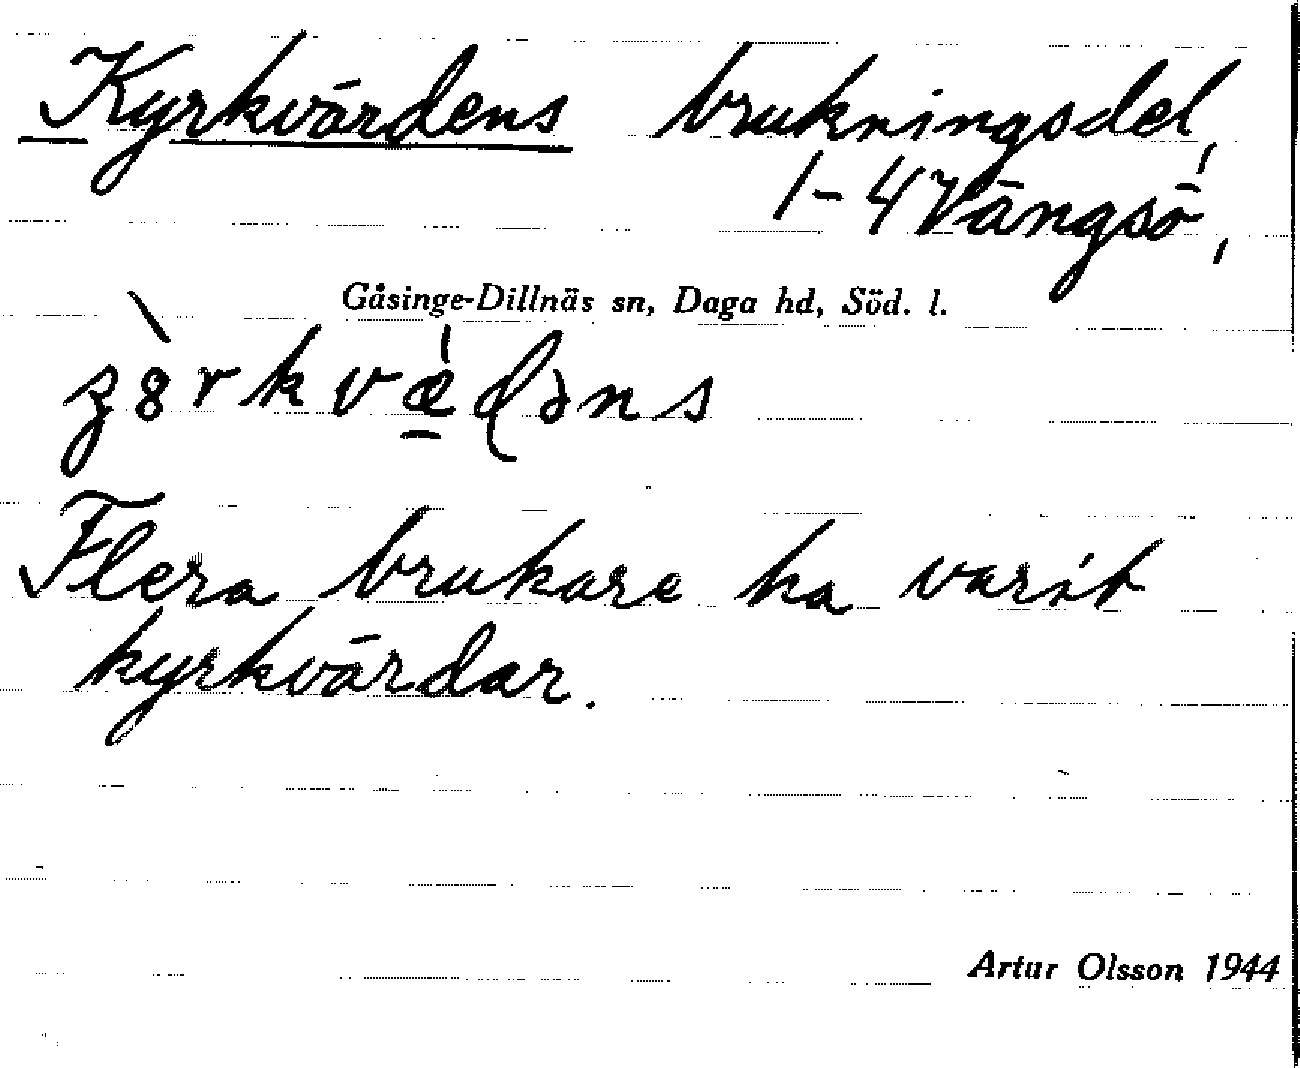 Kyrkvärdens brukningsdel,
1-4 Vängsö,
Gåsinge-Dillnäs sn, Daga hd, Söd. l.
Flera brukare ha varit
kyrkvärdar.
Artur Olsson 1944